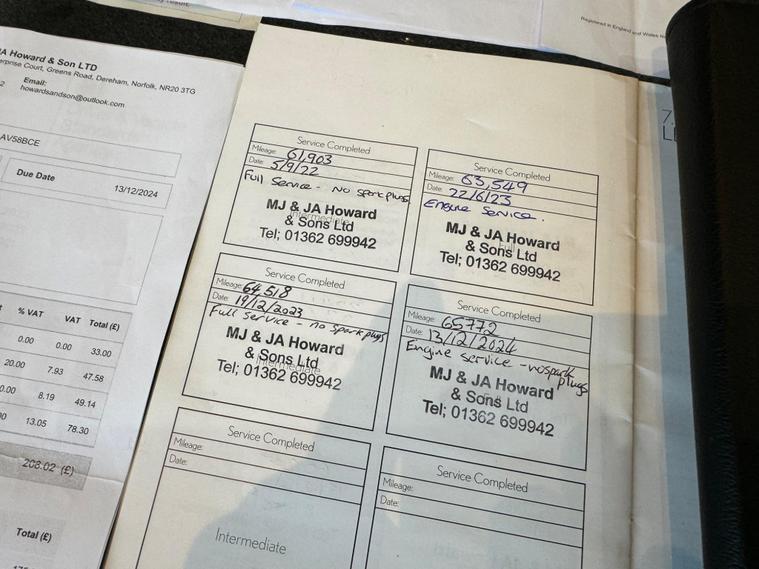 y result.
Registered in England and Wales No
JA Howard & Son LTD
rprise Court, Greens Road, Dereham, Norfolk, NR20 3TG
2 Email:
howardsandson@outlook.com
AV58BCE
Due Date 13/12/2024
% VAT VAT Total (£)
0.00 0.00 33.00
20.00 7.93 47.58
0.00 8.19 49.14
00 13.05 78.30
208.02 (£)
Total (£)
Service Completed
Mileage: 61,903
Date: 5/9/22
Full Service - No spark plugs
Intermediate
MJ & JA Howard
& Sons Ltd
Tel; 01362 699942
Service Completed
Mileage: 63,549
Date: 22/6/23
Engine Service.
Full
MJ & JA Howard
& Sons Ltd
Tel; 01362 699942
Service Completed
Mileage: 64518
Date: 19/12/2023
Full Service - no spark plugs
MJ & JA Howard
& Sons Ltd
Intermediate
Tel; 01362 699942
Service Completed
Mileage: 65772
Date: 13/12/2024
Engine service - no spark
plugs
MJ & JA Howard
& Sons Ltd
Tel; 01362 699942
Service Completed
Mileage:
Date:
Intermediate
Service Completed
Mileage:
Date: